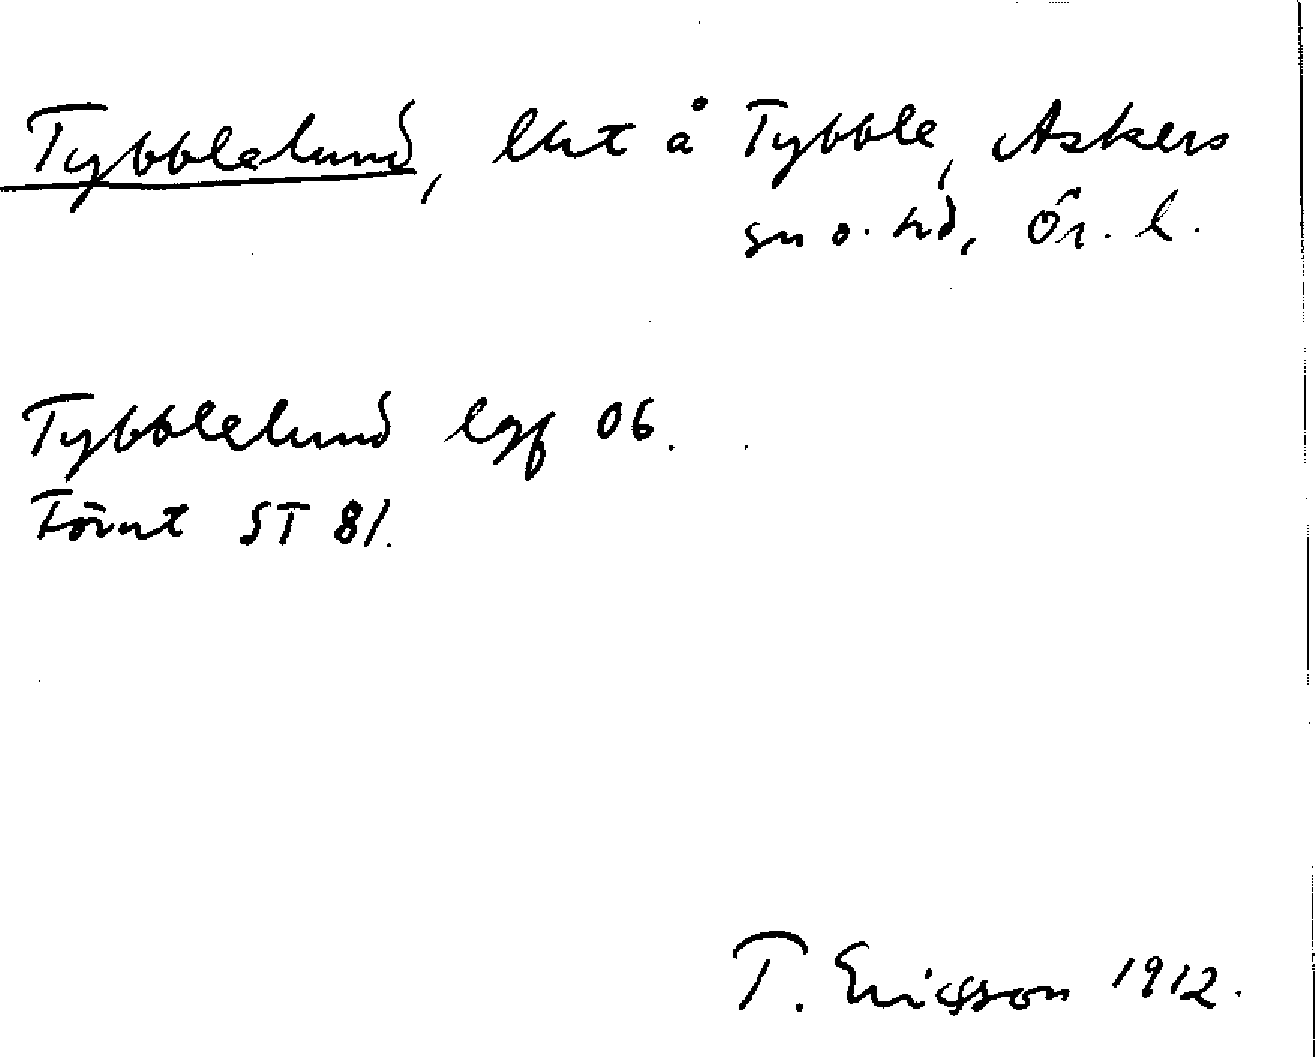 Tybblelund, lht å Tybble, Askers
sn o. hd, Ör. l.
Tybblelund lgf 06.
Förnt ST 81.
T. Ericsson 1912.